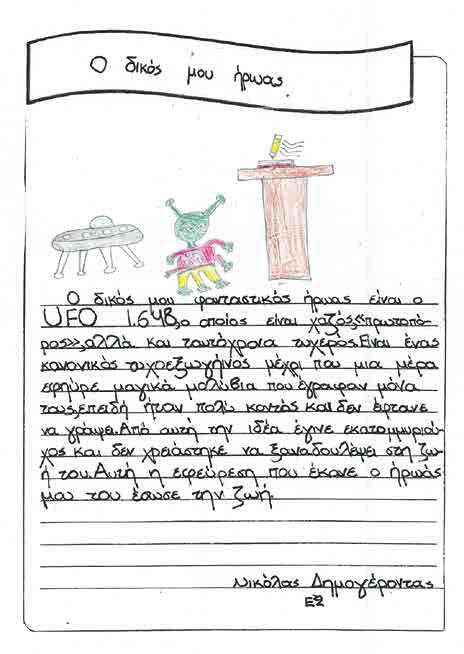 Ο δικός μου ήρωας
Ο δικός μου φανταστικός ήρωας είναι ο
UFO 1.648,ο οποίος είναι χαζός,«πρωτοπό-
ρος»,αλλά και ταυτόχρονα τυχερός.Είναι ένας
κανονικός τυχοεξωγήινος μέχρι που μια μέρα
εφηύρε μαγικά μολύβια που έγραφαν μόνα
τους,επειδή ήταν πολύ κοντός και δεν έφτανε
να γράψει.Από αυτή την ιδέα έγινε εκατομμυριού-
χος και δεν χρειάστηκε να ξαναδουλέψει στη ζω-
ή του.Αυτή η εφεύρεση που έκανε ο ήρωάς
μου του έσωσε την ζωή.
Νικόλας Δημογέροντας
Ε2